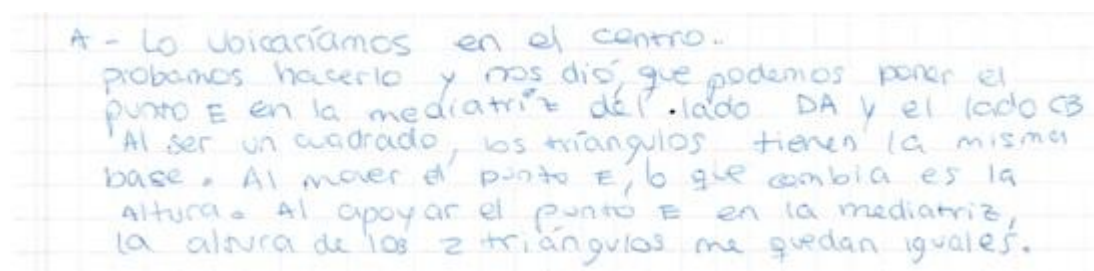 A - Lo ubicaríamos en el centro..
probamos hacerlo y nos dió, que podemos poner el
punto E en la mediatriz del .lado DA y el lado CB
Al ser un cuadrado, los triángulos tienen la misma
base. Al mover el punto E, lo que cambia es la
Altura. Al apoyar el punto E en la mediatriz,
la altura de los 2 triángulos me quedan iguales.